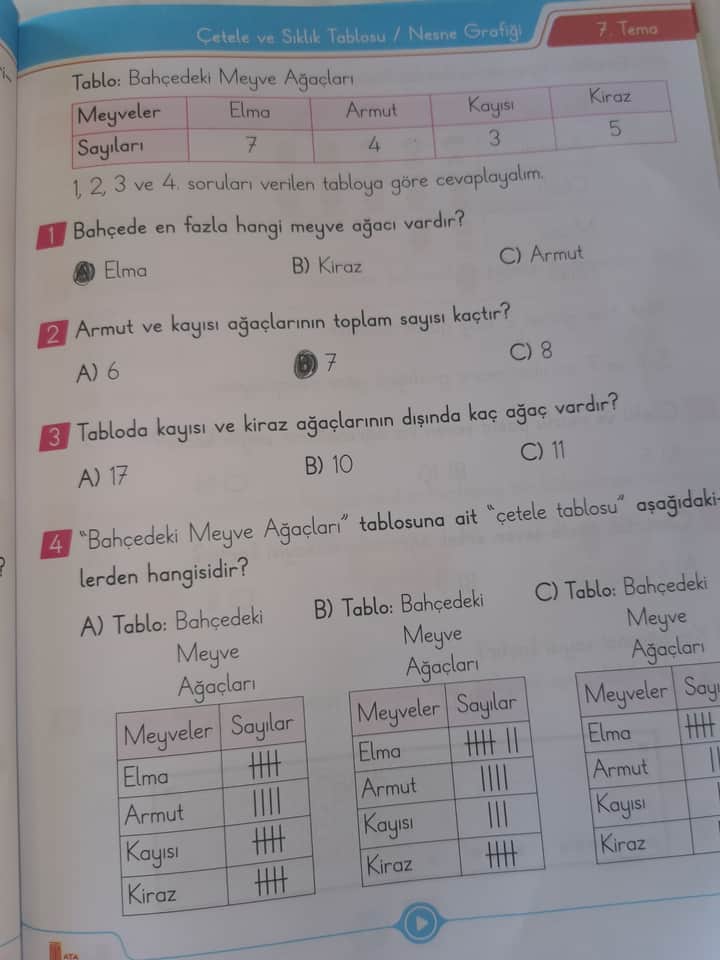 Çetele ve Sıklık Tablosu / Nesne Grafiği
7. Tema
Tablo: Bahçedeki Meyve Ağaçları
Meyveler Elma Armut Kayısı Kiraz
Sayıları 7 4 3 5
1, 2, 3 ve 4. soruları verilen tabloya göre cevaplayalım.
1 Bahçede en fazla hangi meyve ağacı vardır?
A) Elma B) Kiraz C) Armut
2 Armut ve kayısı ağaçlarının toplam sayısı kaçtır?
A) 6 B) 7 C) 8
3 Tabloda kayısı ve kiraz ağaçlarının dışında kaç ağaç vardır?
A) 17 B) 10 C) 11
4 "Bahçedeki Meyve Ağaçları" tablosuna ait "çetele tablosu" aşağıdaki-
lerden hangisidir?
A) Tablo: Bahçedeki
Meyve
Ağaçları
Meyveler Sayılar
Elma
Armut
Kayısı
Kiraz
B) Tablo: Bahçedeki
Meyve
Ağaçları
Meyveler Sayılar
Elma
Armut
Kayısı
Kiraz
C) Tablo: Bahçedeki
Meyve
Ağaçları
Meyveler Sayı
Elma
Armut
Kayısı
Kiraz
ATA